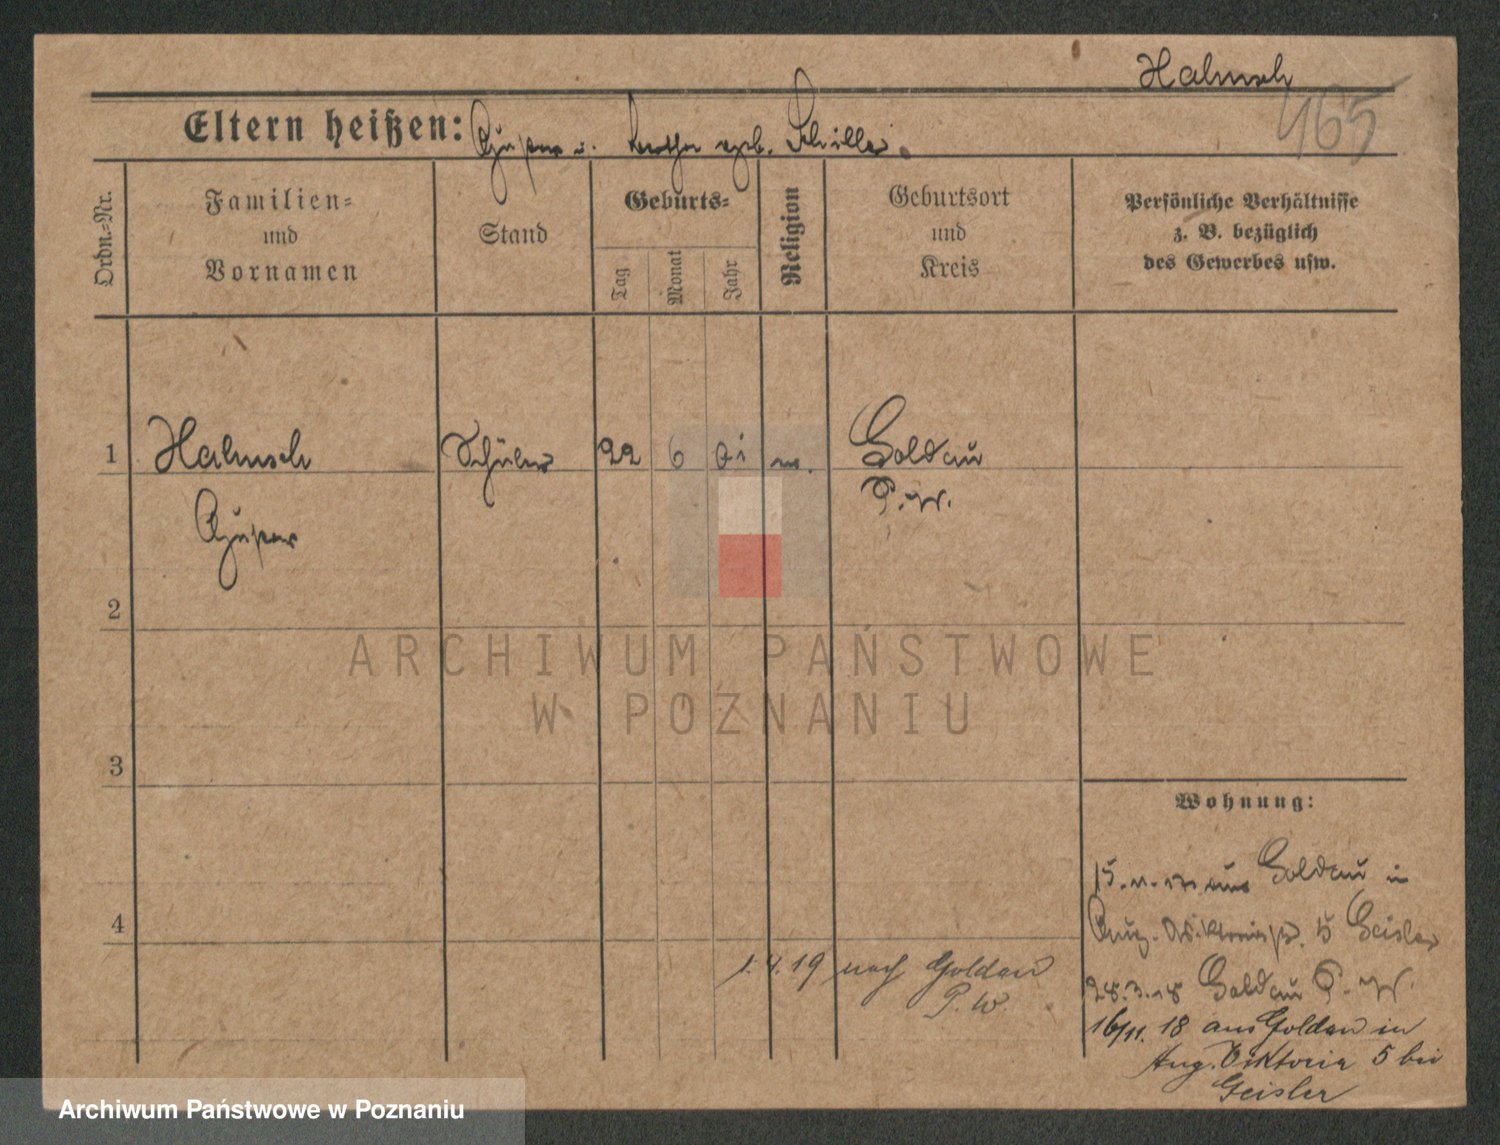 Halmsch
465
Eltern heißen: u. geb. Schiller.
Ordn.-Nr.
Familien-
und
Vornamen
Stand
Geburts-
Tag
Monat
Jahr
Religion
Geburtsort
und
Kreis
Persönliche Verhältnisse
z. B. bezüglich
des Gewerbes usw.
1
Halmsch
Schüler
22
6
Goldau
P. W.
2
3
4
Wohnung:
aus Goldau in
Aug. Viktoriastr. 5 Geisler
28.3.18 Goldau P. W.
16/11. 18 aus Goldau in
Aug. Viktoria 5 bei
Geisler
1.4.19 nach Goldau
P. W.
ARCHIWUM PAŃSTWOWE
W POZNANIU
Archiwum Państwowe w Poznaniu